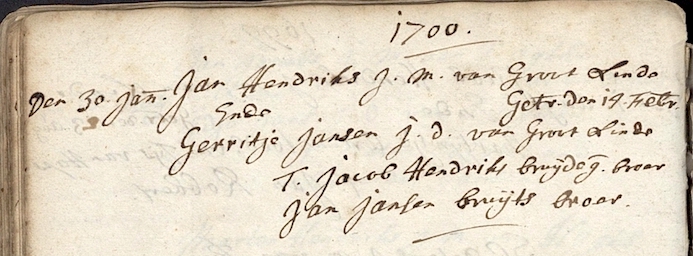 1700.
Den 30. jan. Jan Hendriks j. m. van Groot Linde
Ende Getr. den 14. Febr.
Gerritje Jansen j. d. van Groot Linde
T. Jacob Hendriks bruijdeg. broer
Jan Jansen bruijts broer.